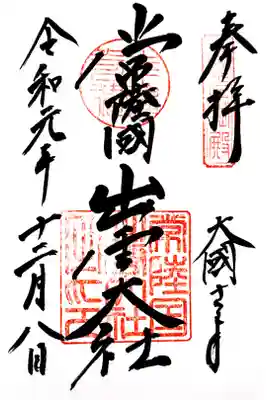 奉拝
大國さま
常陸國
出雲大社
令和元年十二月八日